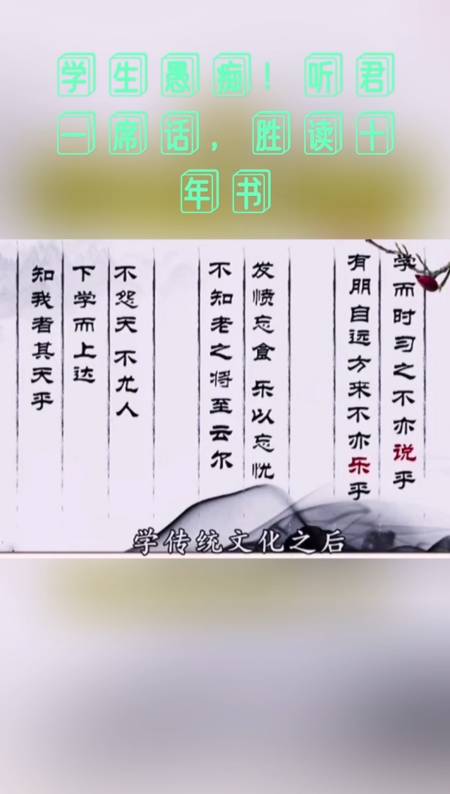 学生愚痴！听君
一席话，胜读十
年书
学而时习之不亦说乎
有朋自远方来不亦乐乎
发愤忘食 乐以忘忧
不知老之将至云尔
不怨天 不尤人
下学而上达
知我者其天乎
学传统文化之后